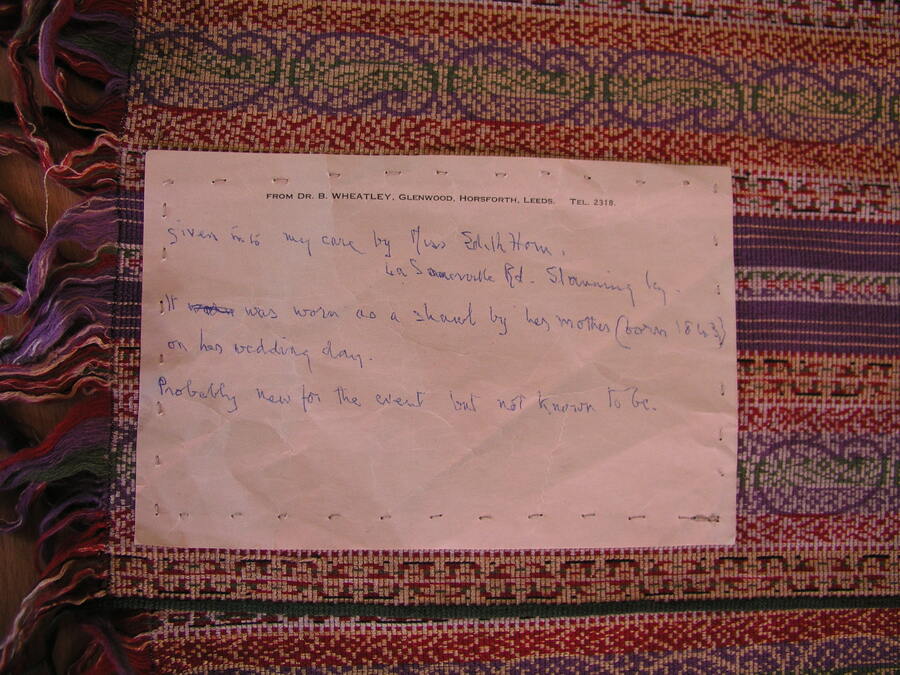 FROM DR. B. WHEATLEY, GLENWOOD, HORSFORTH, LEEDS. TEL. 2318.
given into my care by Miss Edith Horn.
Somerville Rd.
It was worn as a shawl by her mother (born 1843)
on her wedding day.
Probably new for the event but not known to be.